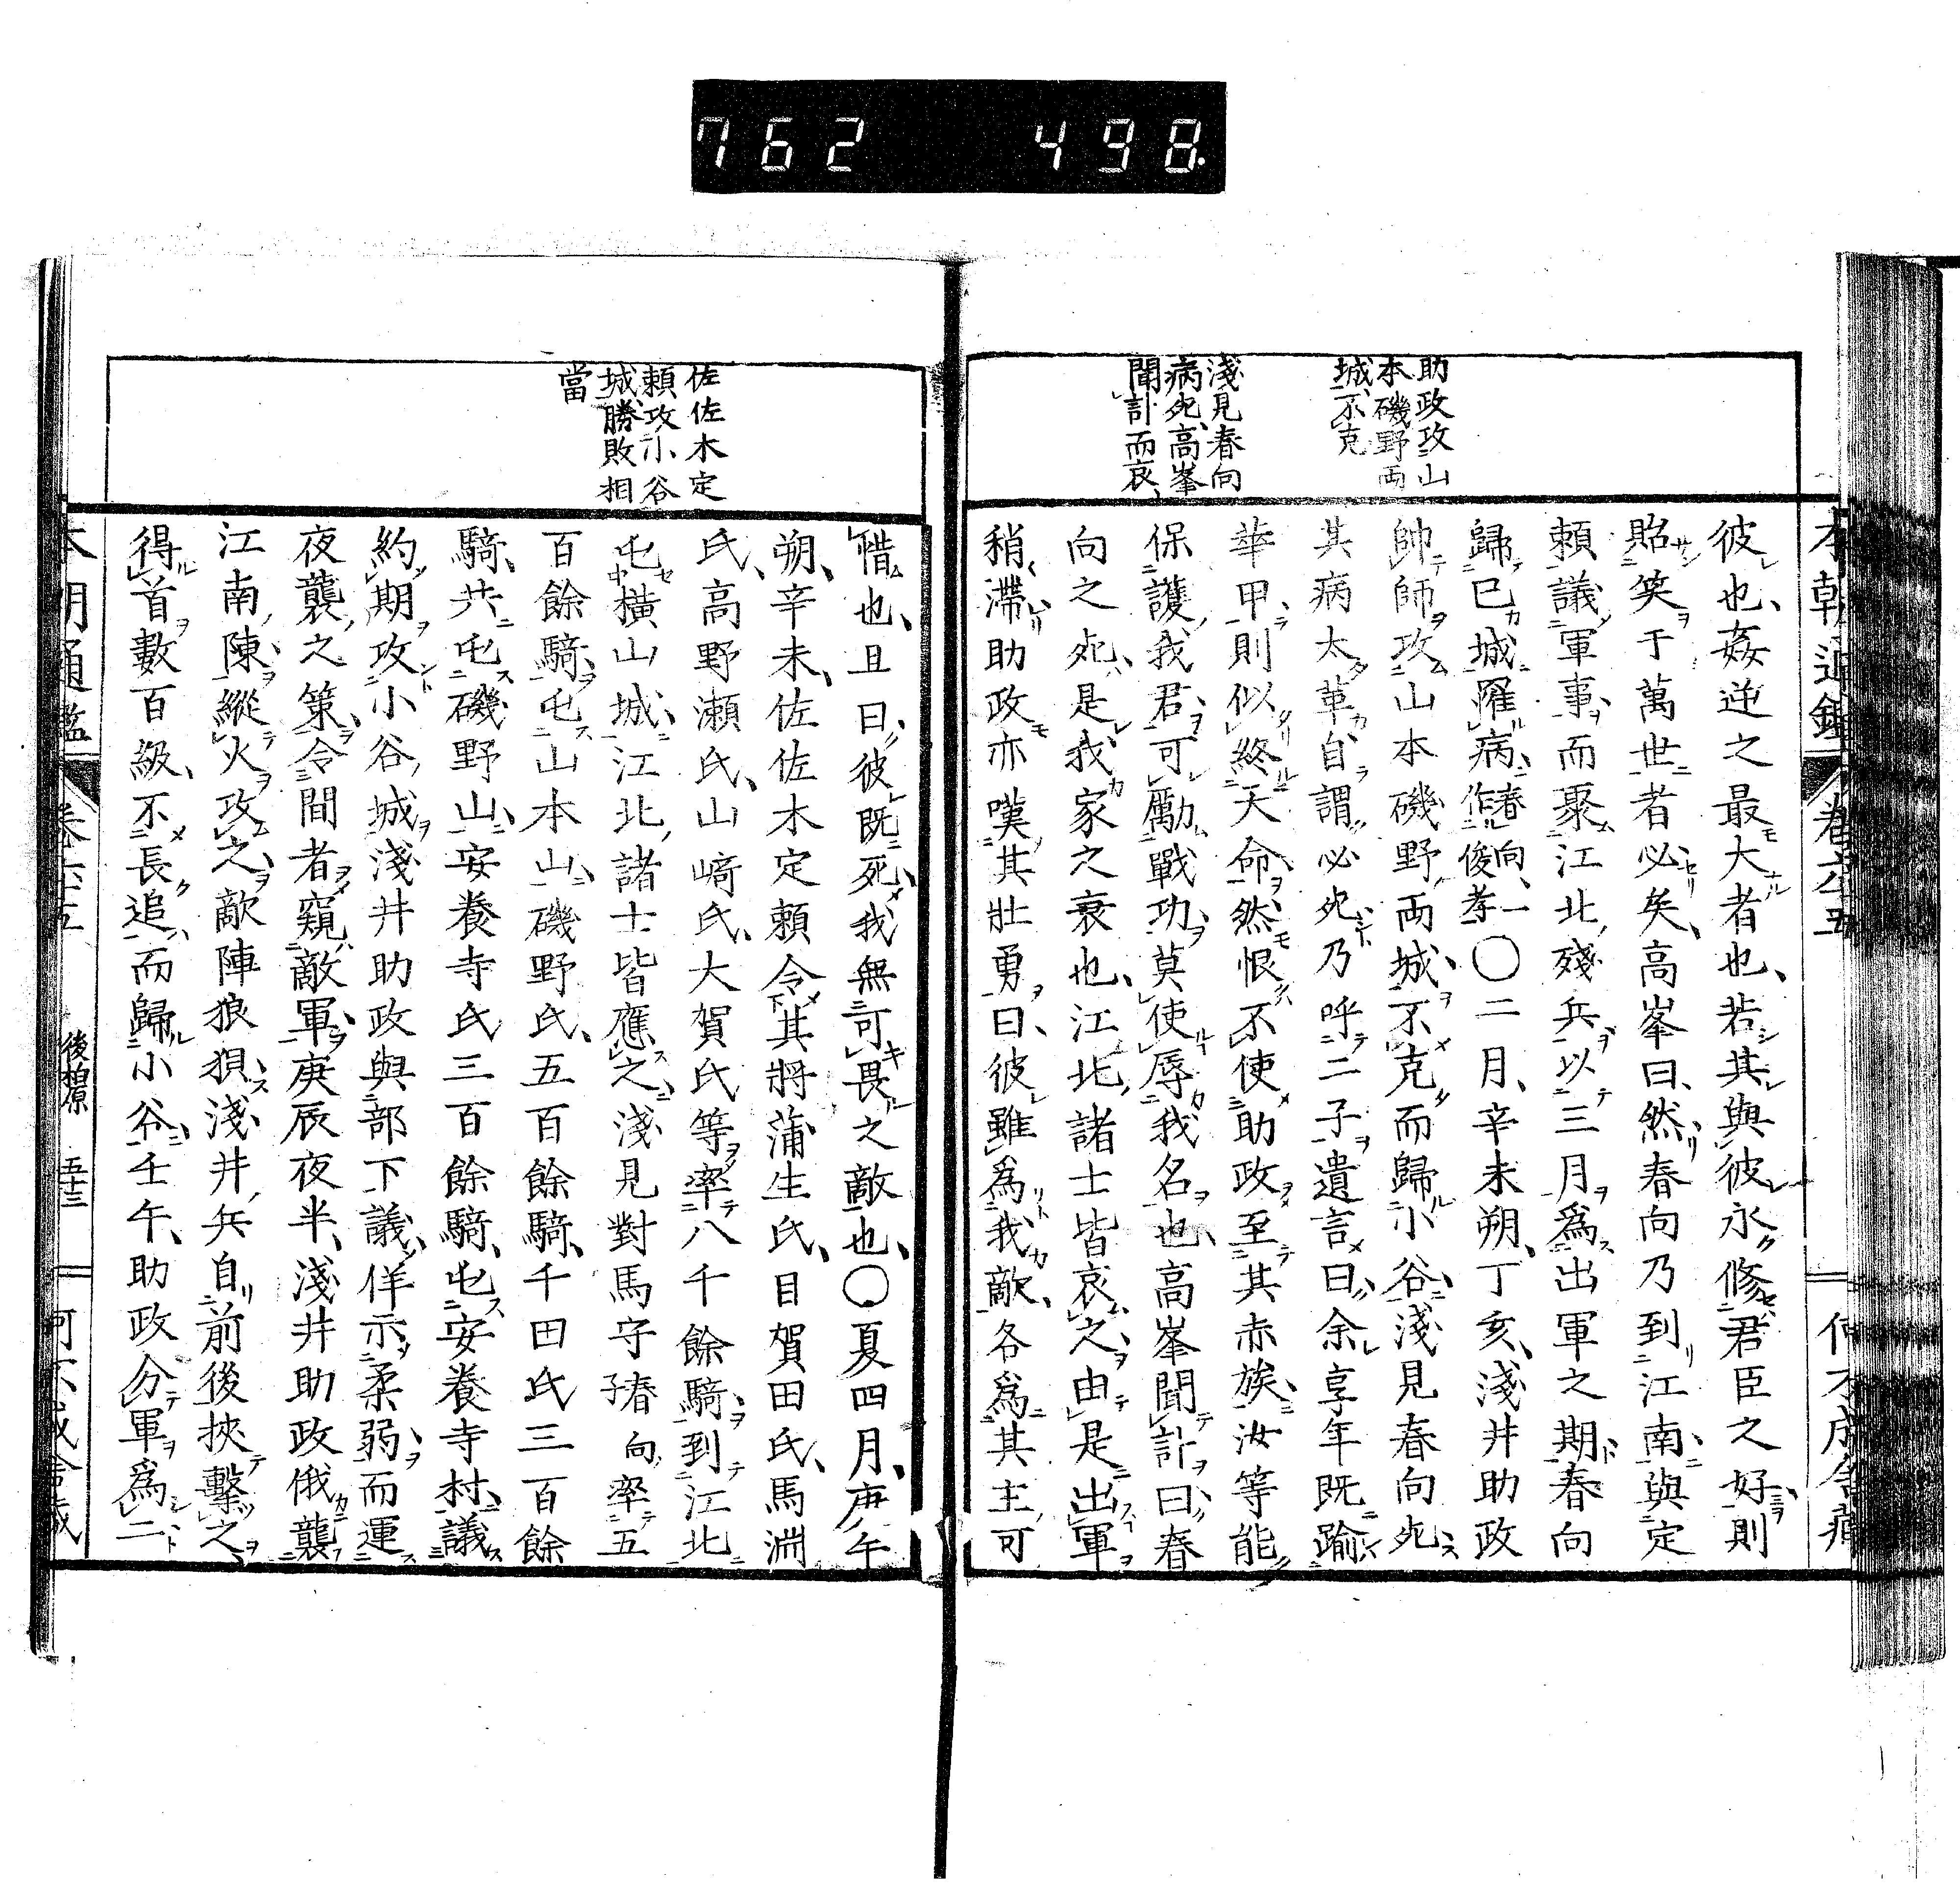 762 498
本朝通鑑 卷六十五 何不成舍藏
助政攻山
本磯野両
城不克
淺見春向
病死高峯
聞訃而哀
彼也、姦逆之最大者也、若其與彼永修君臣之好則
貽笑于萬世者必矣、高峯曰、然春向乃到江南與定
頼議軍事而聚江北殘兵以三月爲出軍之期春向
歸已城罹病春向、一作俊孝〇二月、辛未朔、丁亥、淺井助政
帥師攻山本磯野両城不克而歸小谷淺見春向死
其病太革自謂必死乃呼二子遺言曰余享年既踰
華甲則似終天命然恨不使助政至其赤族汝等能
保護我君可勵戰功莫使辱我名也、高峯聞訃曰春
向之死是我家之衰也、江北諸士皆哀之由是出軍
稍滯助政亦嘆其壯勇曰、彼雖爲我敵各爲其主可
佐佐木定
頼攻小谷
城勝敗相
當
惜也、且曰、彼既死我無可畏之敵也、〇夏四月、庚午
朔、辛未、佐佐木定頼令其將蒲生氏、目賀田氏、馬淵
氏、高野瀬氏、山﨑氏、大賀氏等率八千餘騎到江北
屯横山城江北諸士皆應之淺見對馬守春向子率五
百餘騎屯山本山磯野氏、五百餘騎、千田氏三百餘
騎、共屯磯野山、安養寺氏三百餘騎、屯安養寺村議
約期攻小谷城淺井助政與部下議佯示柔弱而運
夜襲之策令間者窺敵軍庚辰夜半、淺井助政俄襲
江南陳縱火攻之敵陣狼狽淺井兵自前後挾擊之
得首數百級、不長追而歸小谷壬午、助政分軍爲二
本朝通鑑 卷六十五 後柏原 五十三 何不成舍藏